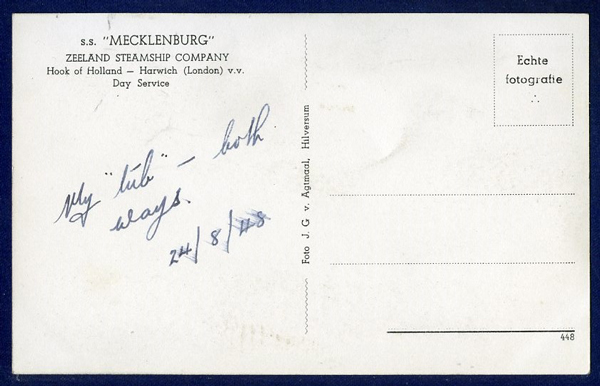 s.s. "MECKLENBURG"
ZEELAND STEAMSHIP COMPANY
Hook of Holland — Harwich (London) v.v.
Day Service
My "tub" — both
ways.
24/8/48
Foto J. G. v. Agtmaal, Hilversum
Echte
fotografie
448